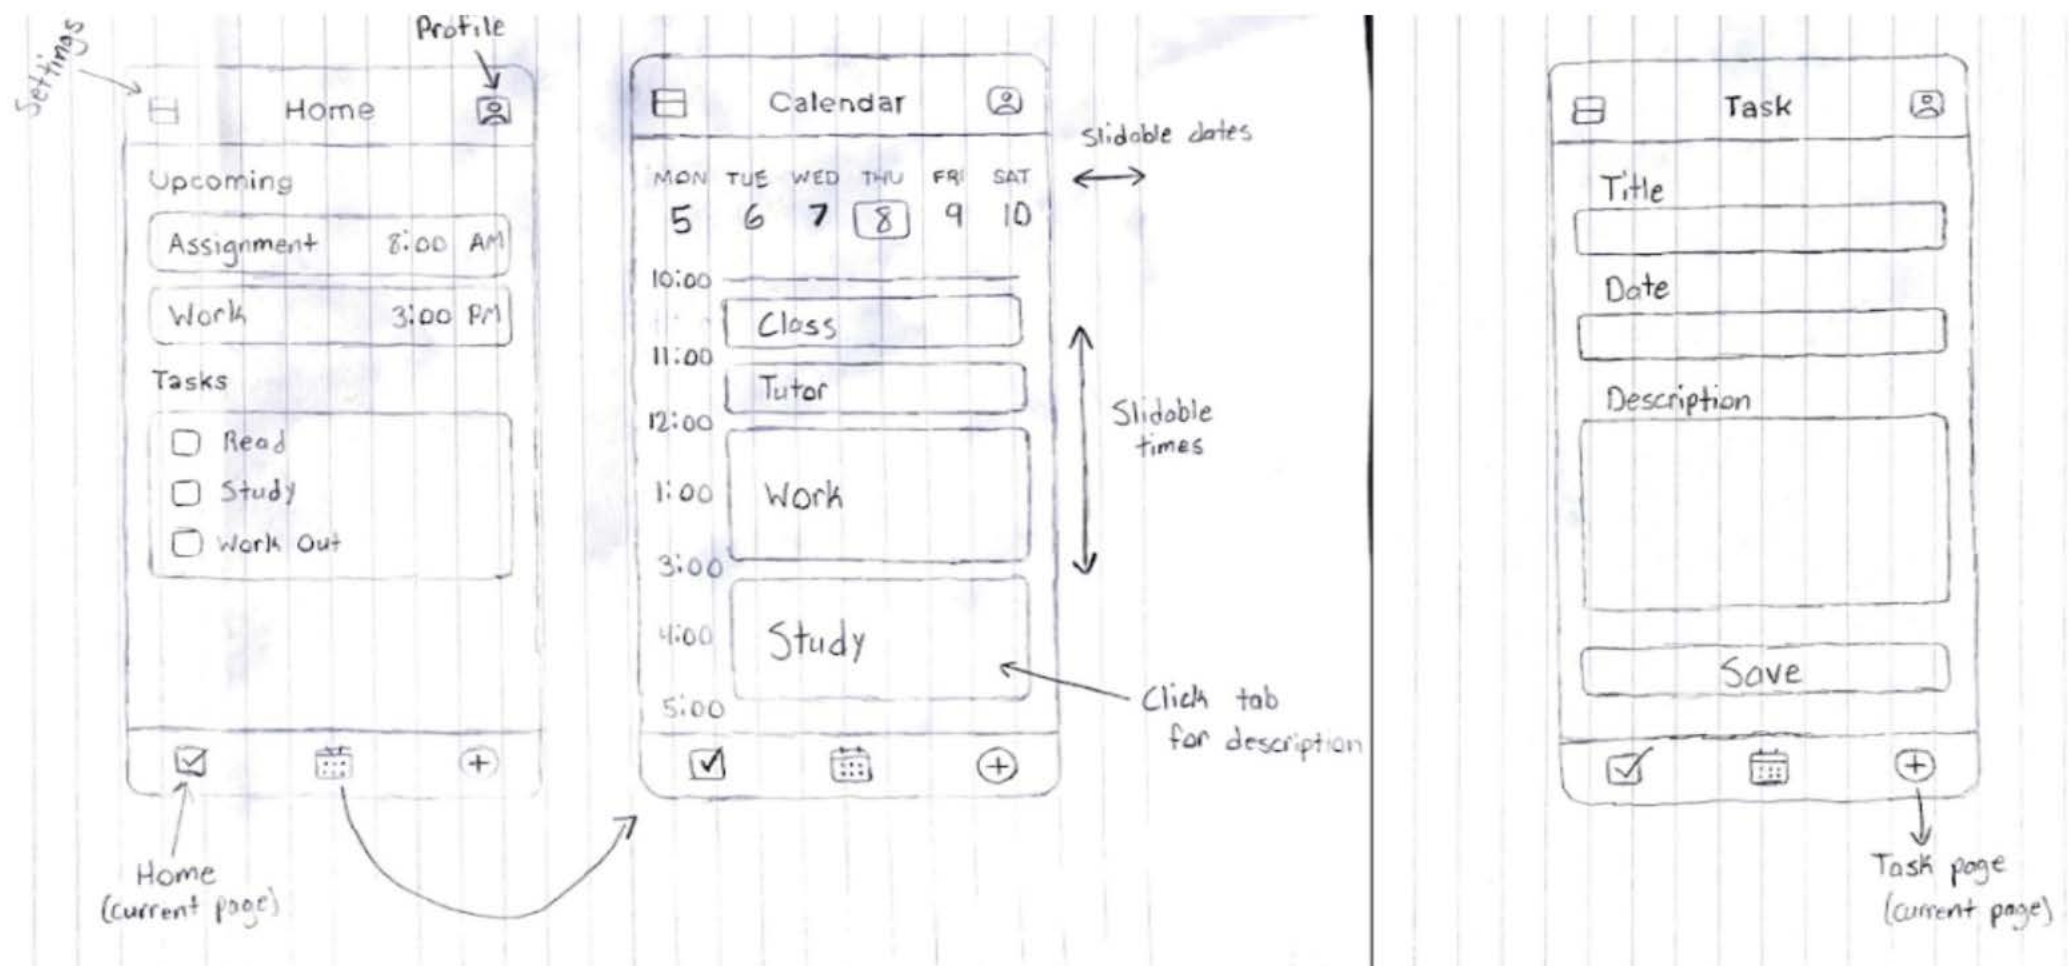 Settings
Profile
Home
Upcoming
Assignment 8:00 AM
Work 3:00 PM
Tasks
Read
Study
Work Out
Home
(current page)
Calendar
MON TUE WED THU FRI SAT
5 6 7 8 9 10
10:00
Class
11:00
Tutor
12:00
1:00 Work
3:00
4:00 Study
5:00
Slidable dates
Slidable
times
Click tab
for description
Task
Title
Date
Description
Save
Task page
(current page)